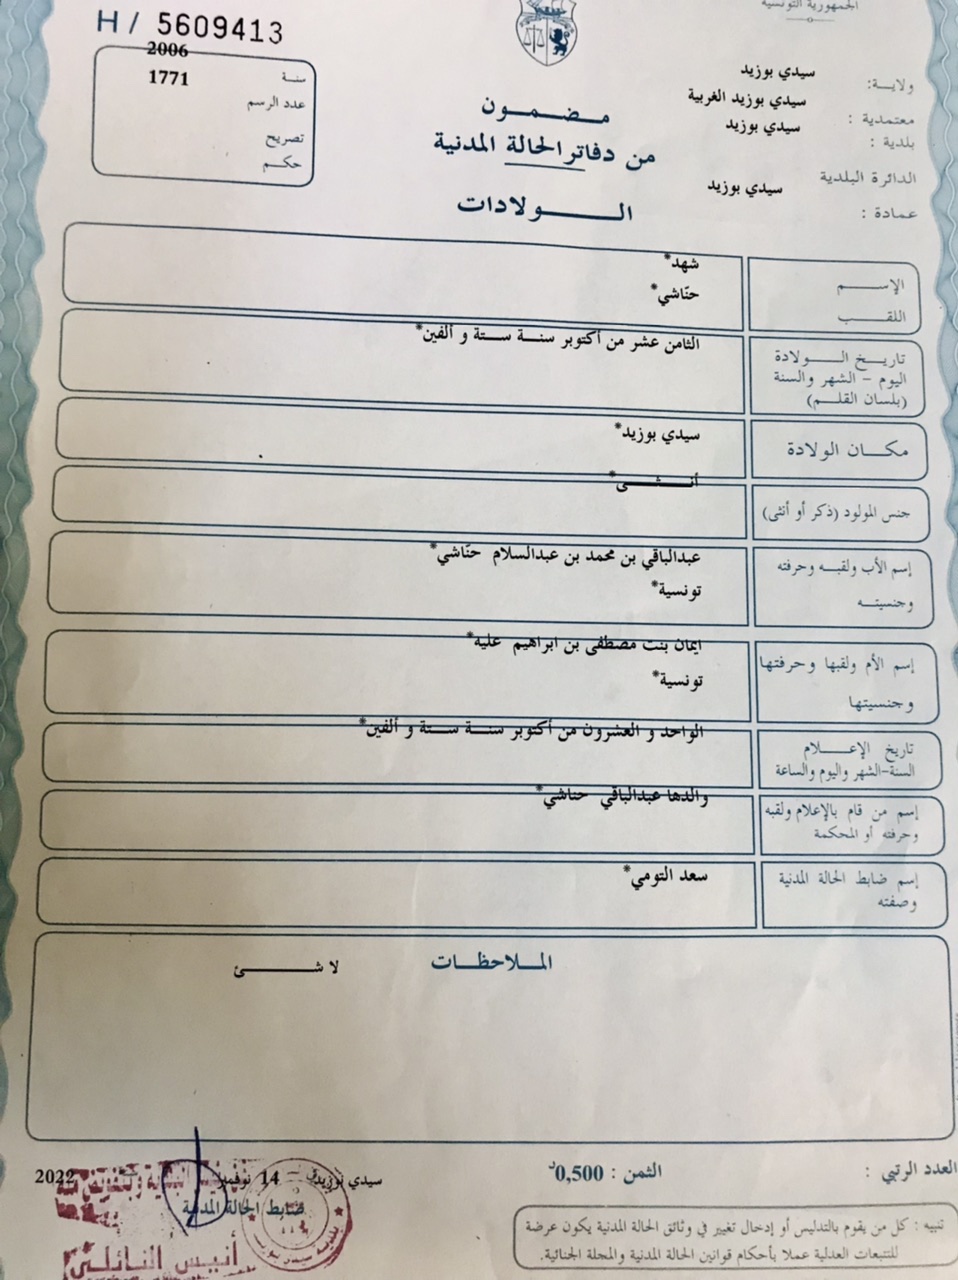 الجمهورية التونسية
H / 5609413
سنة 2006
عدد الرسم 1771
تصريح
حكـم
ولايـة: سيدي بوزيد
معتمدية : سيدي بوزيد الغربية
بلدية : سيدي بوزيد
الدائرة البلدية
عمادة : سيدي بوزيد
مـضـمـون
من دفاتر الحالة المدنية
الـولادات
الإسـم شهد*
اللقـب حنّاشي*
تاريـخ الـولادة الثامن عشر من أكتوبر سنـة ستـة و ألفين*
اليوم - الشهر والسنة
(بلسان القلـم)
مكـان الولادة سيدي بوزيد*
جنس المولود (ذكر أو أنثى) أنـثـى*
إسم الأب ولقبـه وحرفته عبدالباقي بن محمد بن عبدالسلام حنّاشي*
وجنسيتـه تونسية*
إسم الأم ولقبها وحرفتها ايمان بنت مصطفى بن ابراهيم عليه*
وجنسيتها تونسية*
تاريخ الإعـلام الواحد و العشرون من أكتوبر سنـة ستـة و ألفين*
السنة-الشهر واليوم والساعة
إسم من قام بالإعلام ولقبه والدها عبدالباقي حناشي*
وحرفته أو المحكمة
إسم ضابط الحالة المدنية سعد التومي*
وصفته
المـلاحظـات لا شـئ
العدد الرتبي :
الثمن : 0,500د
سيدي بوزيد 14 نوفمبر 2022
ضابط الحالة المدنية
أنيس النائلي
تنبيه : كل من يقوم بالتدليس أو إدخال تغيير في وثائق الحالة المدنية يكون عرضة
للتتبعات العدلية عملا بأحكام قوانين الحالة المدنية والمجلة الجنائية.